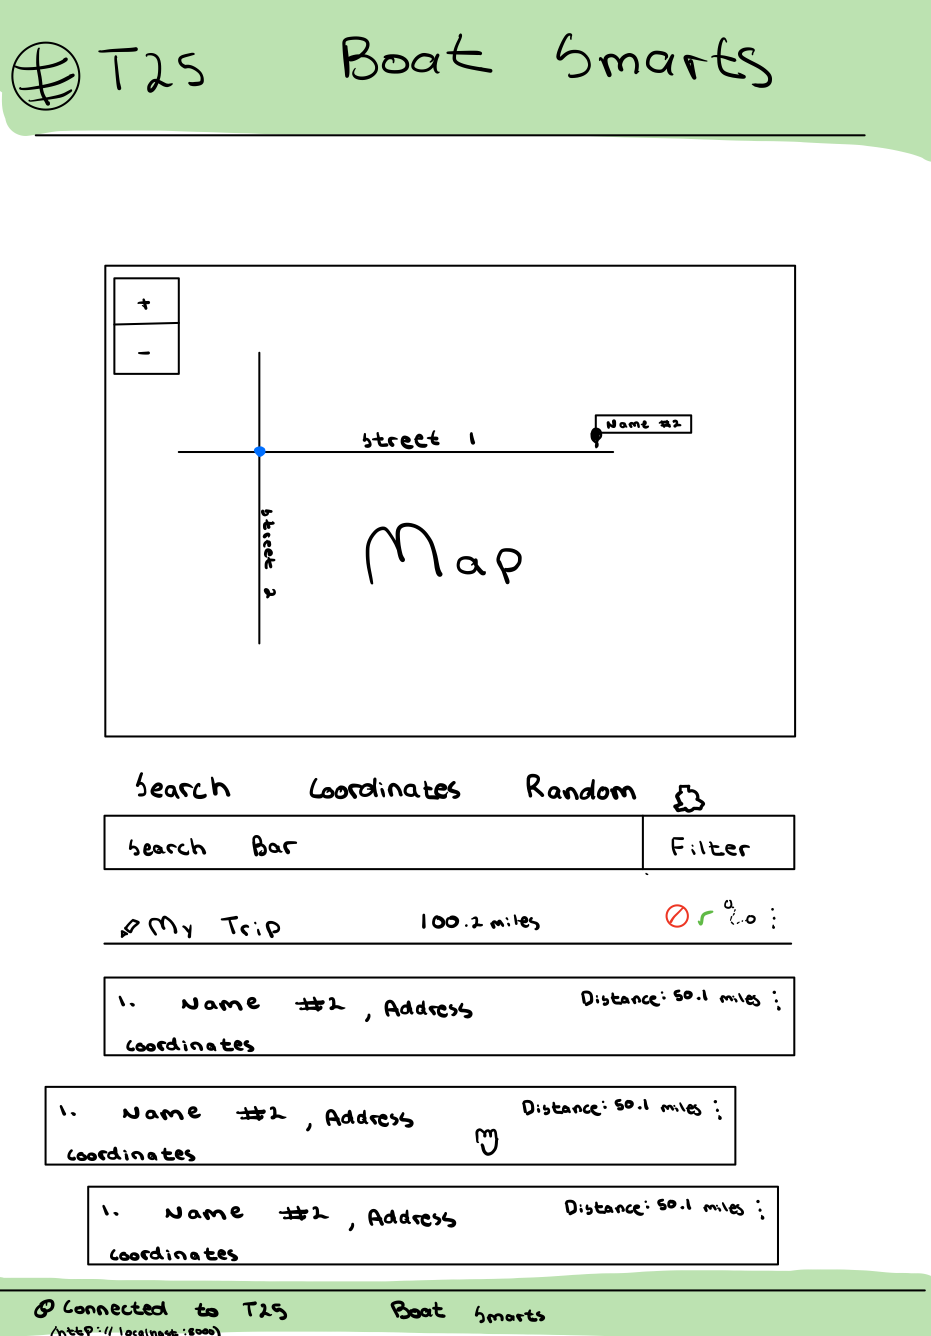 T25 Boat Smarts
+
-
Name #2
Street 1
Street 2
Map
Search Coordinates Random
Search Bar Filter
My Trip 100.2 miles
1. Name #2, Address Distance: 50.1 miles
Coordinates
1. Name #2, Address Distance: 50.1 miles
Coordinates
1. Name #2, Address Distance: 50.1 miles
Coordinates
Connected to T25 Boat Smarts
(http://localhost:8000)